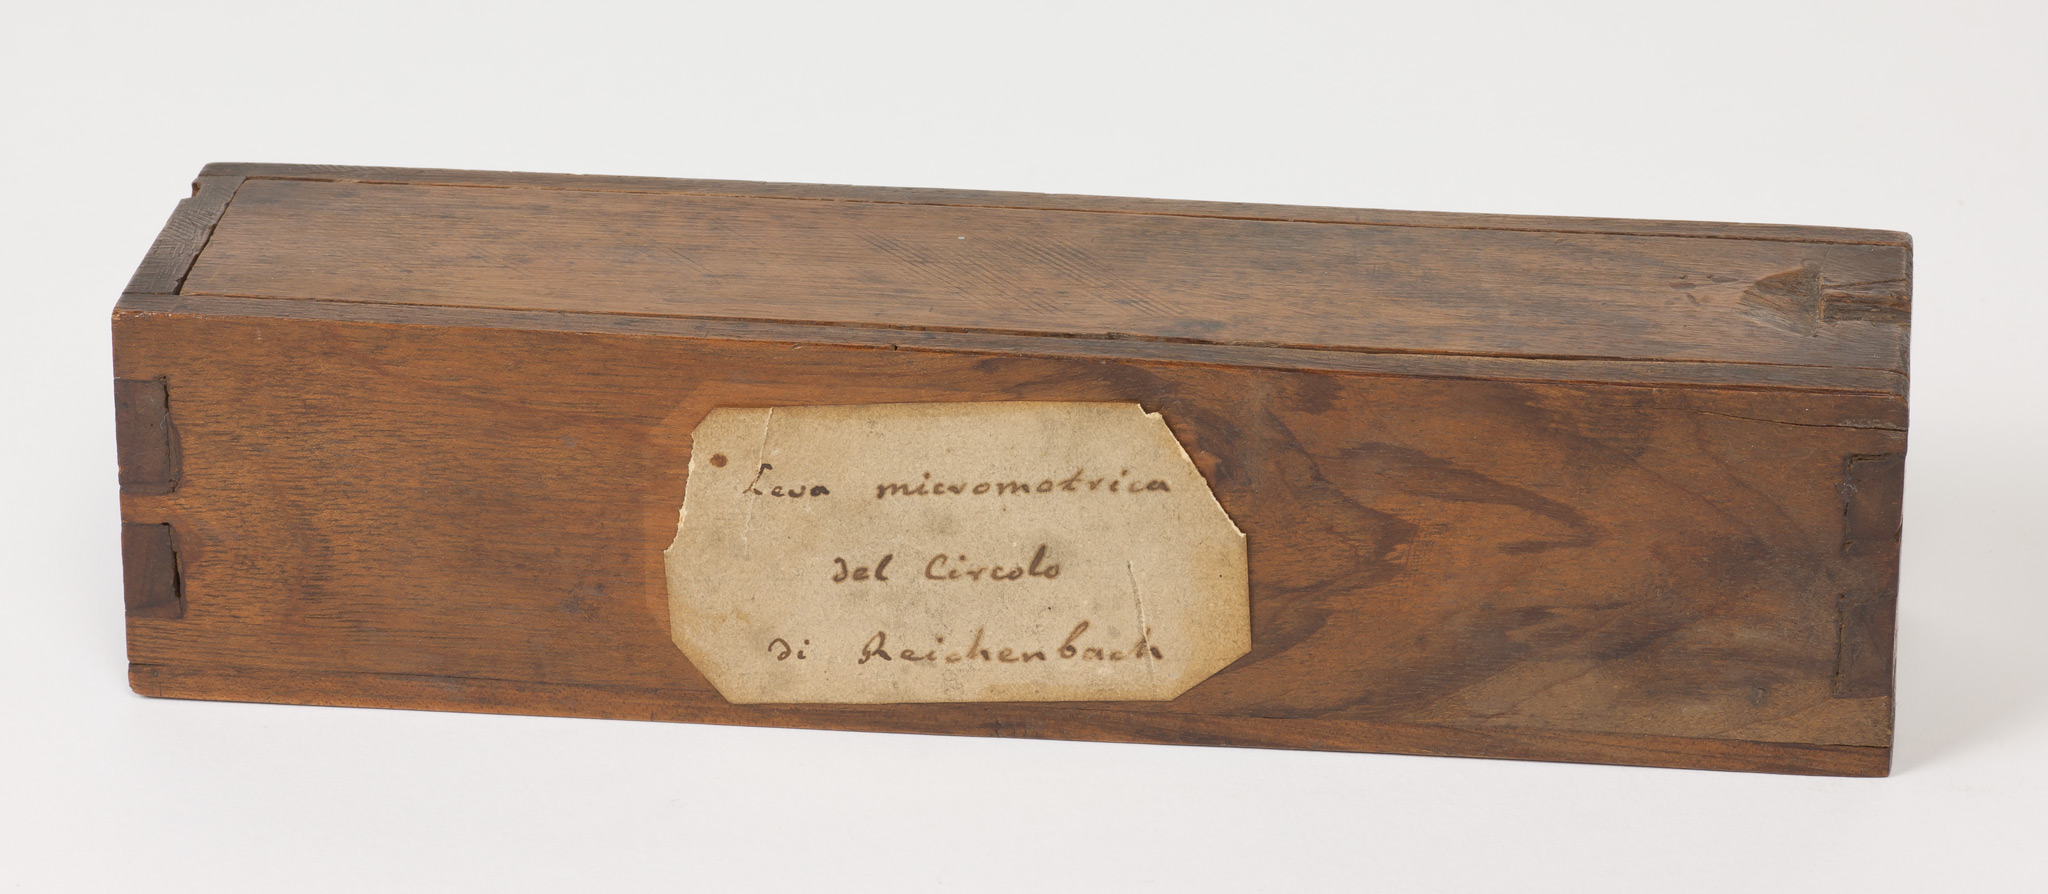 Leva micromotrica
del Circolo
di Reichenbach